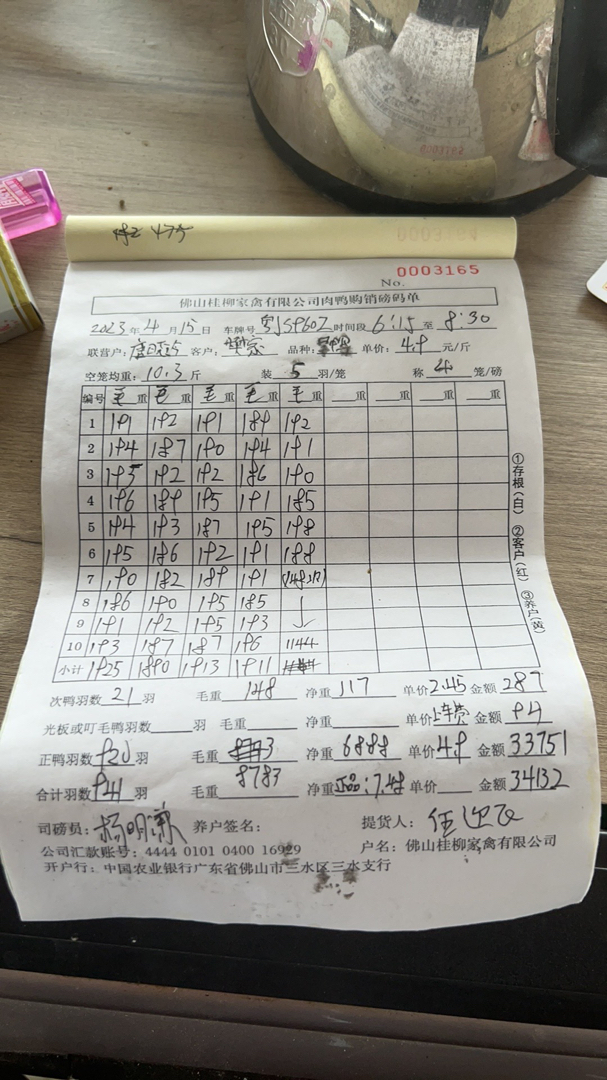 0003165
No.
佛山桂柳家禽有限公司肉鸭购销磅码单
2023年4月15日 车牌号 粤JS9607 时间段 6:15 至 8:30
联营户: 客户: 品种: 单价: 4.9 元/斤
空笼均重: 10.3 斤 装 5 羽/笼 称 4 笼/磅
编号 毛重 毛重 毛重 毛重 毛重 重 重 重
1 191 192 191 189 192
2 194 187 190 194 191
3 195 192 192 186 190
4 196 189 195 191 185
5 194 193 187 195 198
6 195 186 192 191 188
7 190 182 189 191
8 186 190 195 185
9 191 192 195 193
10 193 187 187 196 1144
小计 1925 1890 1913 1911
①存根(白) ②客户(红) ③养户(黄)
次鸭羽数 21 羽 毛重 148 净重 117 单价 2.45 金额 287
光板或叮毛鸭羽数 羽 毛重 净重 单价 上车费 金额 94
正鸭羽数 920 羽 毛重 净重 6888 单价 4.9 金额 33751
合计羽数 941 羽 毛重 8783 净重 正品:7.48 单价 金额 34132
司磅员: 杨明 养户签名: 提货人: 任迎飞
公司汇款账号: 4444 0101 0400 16929 户名: 佛山桂柳家禽有限公司
开户行: 中国农业银行广东省佛山市三水区三水支行